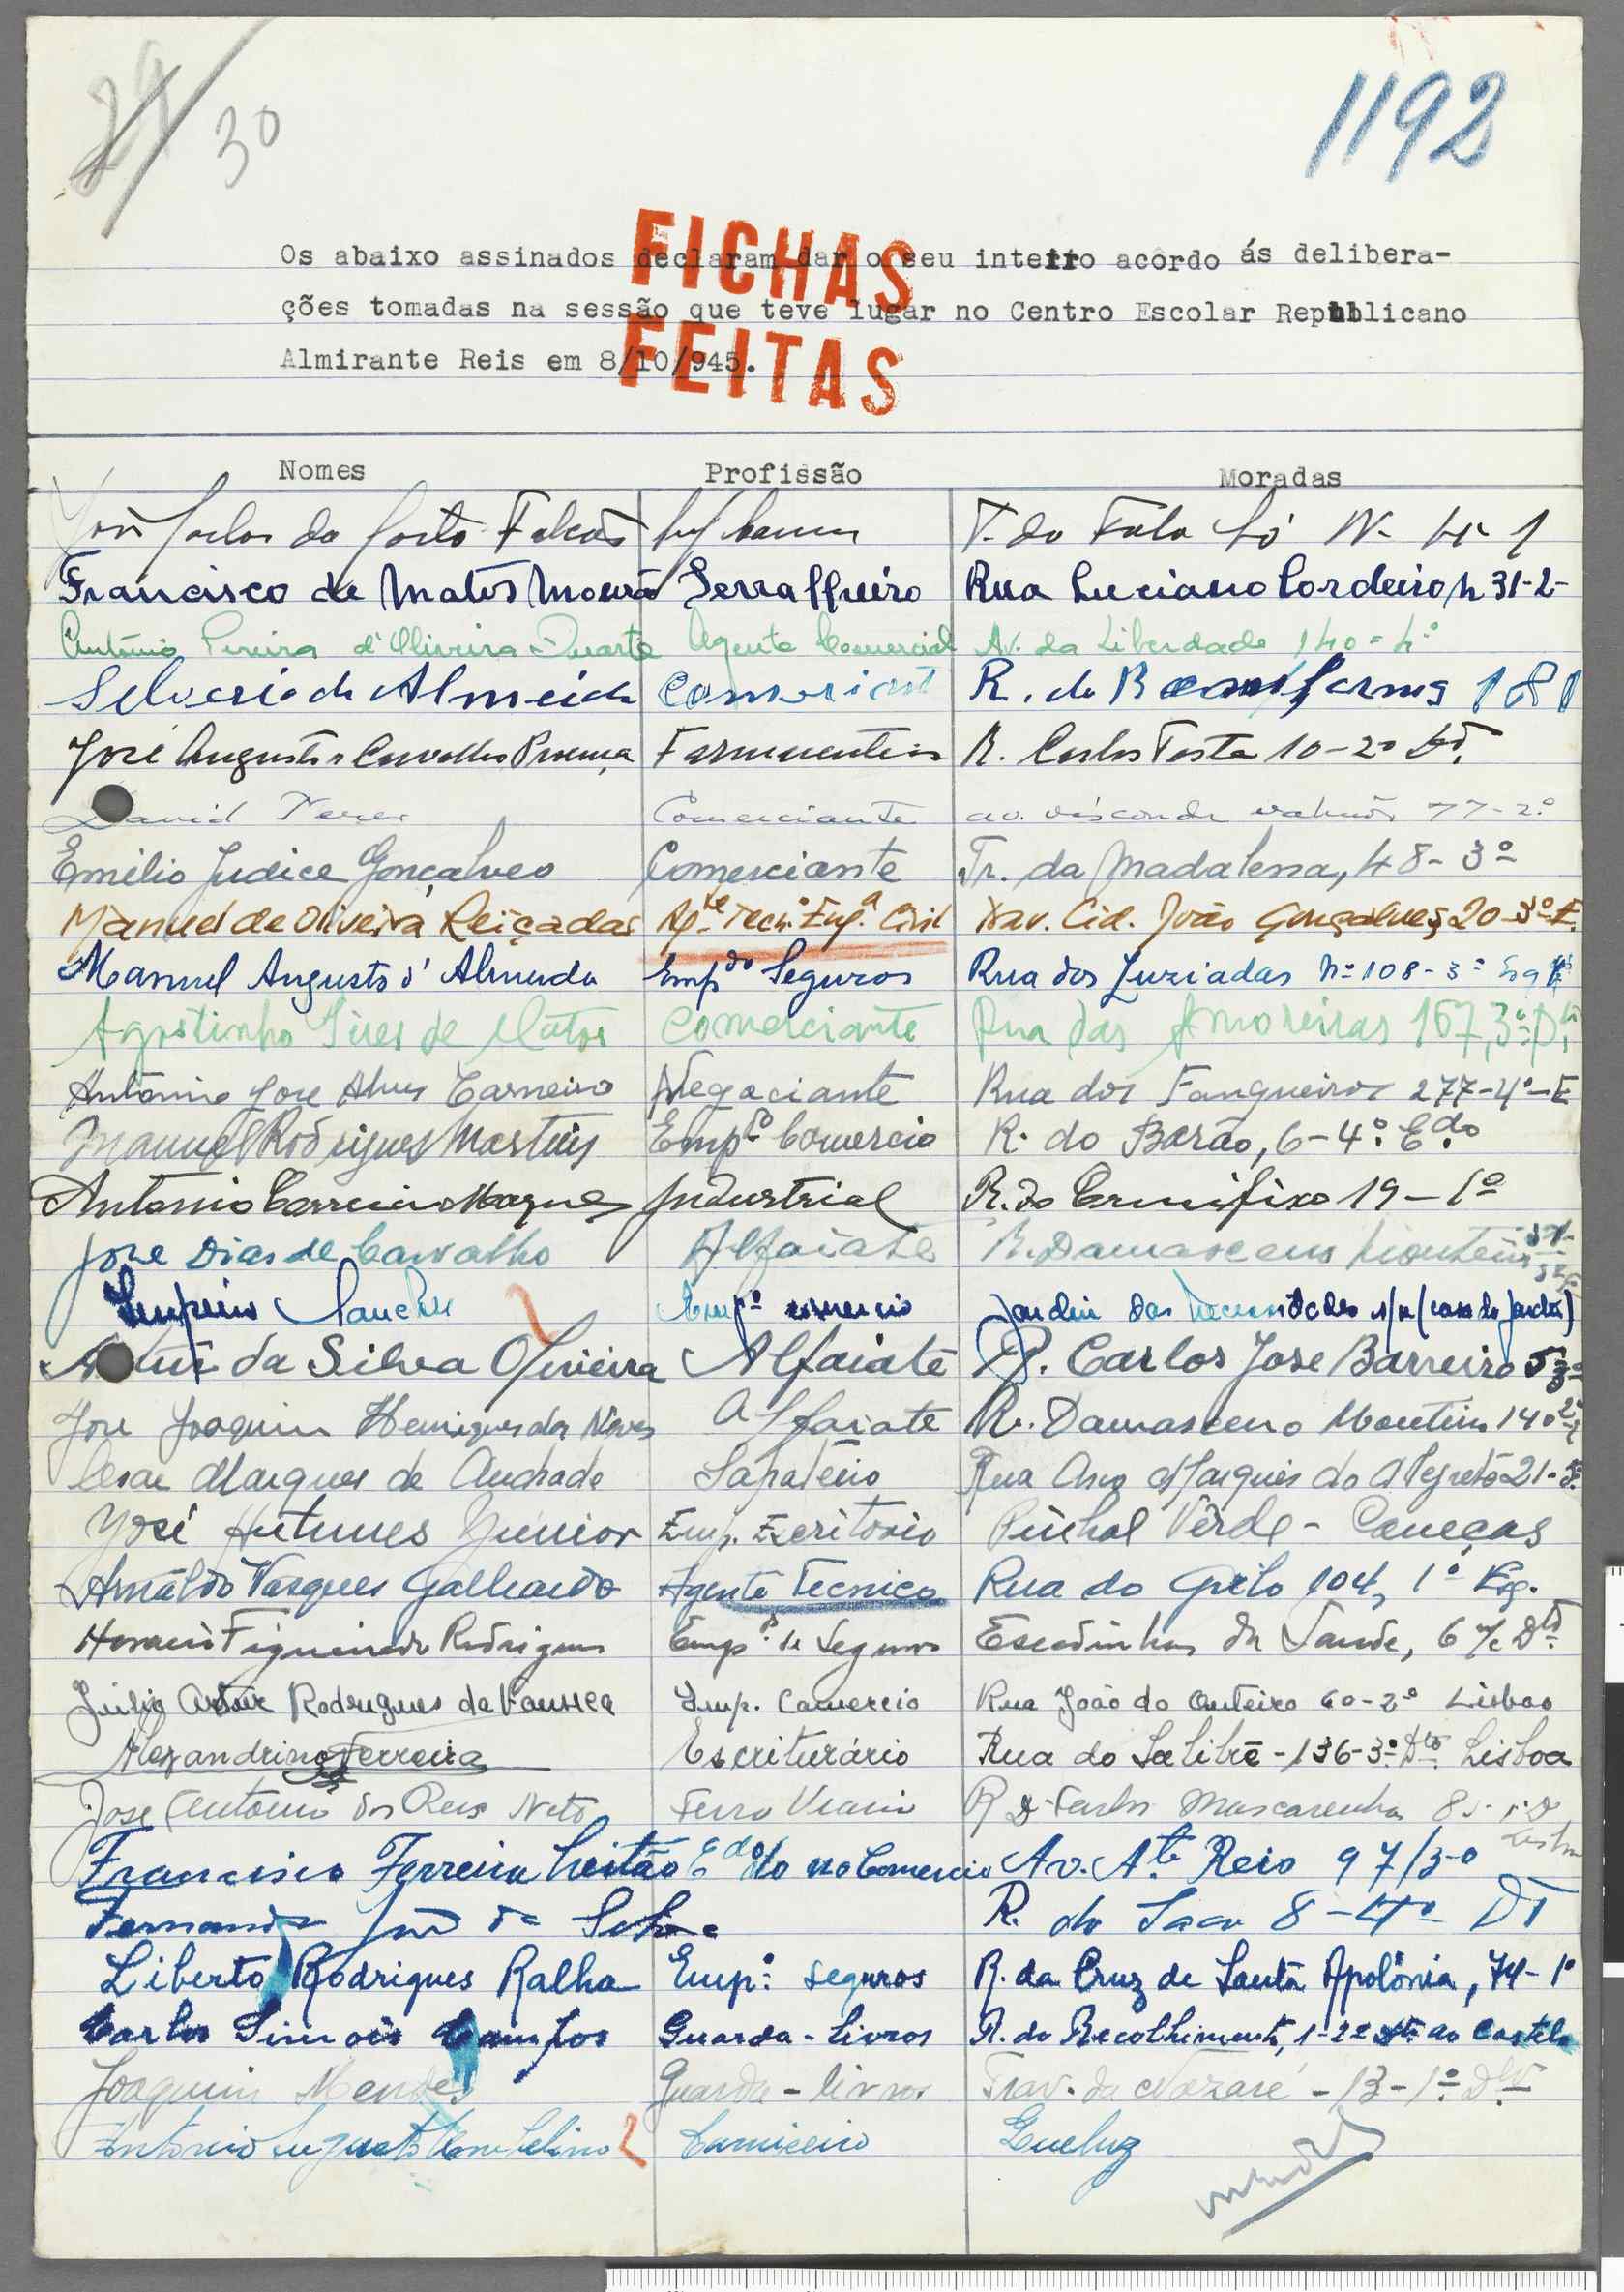 29
30
1192
Os abaixo assinados declaram dar o seu inteiro acôrdo ás delibera-
ções tomadas na sessão que teve lugar no Centro Escolar Republicano
Almirante Reis em 8/10/945.
FICHAS
FEITAS
Nomes Profissão Moradas
José Carlos da Costa Falcão T. do Fala Só Nº
Francisco de Matos Mourão Serralheiro Rua Luciano Cordeiro, 31-2-
António Pereira d'Oliveira Duarte Agente Comercial Av. da Liberdade 140-4º
Silverio de Almeida R. de
José Augusto Carvalho Proença Farmaceutico R. Carlos Testa 10-2º Dt.
David Comerciante av. visconde valmôr 77-2º
Emilio Judice Gonçalves Comerciante Tr. da Madalena, 48-3º
Manuel de Oliveira Reiçadas Agte Tecnº Engª Civil Trav. Cid. João Gonçalves 20-3º E.
Manuel Augusto d'Almeida Empdo Seguros Rua dos Luziadas Nº 108-3º
Agostinho Pires de Matos Comerciante Rua das Amoreiras 167, 3º Dt
António José Alves Carneiro Negociante Rua dos Fanqueiros 277-4º-E
Manuel Rodrigues Martins Empº Comercio R. do Barão, 6-4º Edo
Antonio Correia Marques Industrial R. do Crucifixo 19-1º
José Dias de Carvalho Alfaiate R. Damasceno Monteiro
Sanches Empº comercio Jardim das Necessidades s/n
da Silva Oliveira Alfaiate R. Carlos José Barreiro 5
José Joaquim Henriques das Neves Alfaiate R. Damasceno Monteiro 140
Cesar Marques de Andrade Sapateiro Rua Arco Marquês do Alegrete 21-
José Antunes Júnior Emp. Escritorio Pinhal Verde - Caneças
Arnaldo Vasques Galhardo Agente Tecnico Rua do Grilo 104, 1º Esq.
Horacio Figueiredo Rodrigues Empº de Seguros Escadinhas da Saude, 6
Júlio Artur Rodrigues da Fonseca Emp. Comercio Rua João do Outeiro 60-2º Lisboa
Alexandrino Ferreira Escriturário Rua do Salitre - 136-3º Dto Lisboa
José António dos Reis Neto Ferro Viario R. D. Carlos Mascarenhas
Francisco Ferreira Leitão Edo no Comercio Av. Ate Reis 97/3º
Fernando José da Silva R. do Saco 8-4º DT
Liberto Rodrigues Ralha Empº seguros R. da Cruz de Santa Apolónia, 74-1º
Carlos Simões Campos Guarda-Livros R. do Recolhimento, 1-2º dto ao Castelo
Joaquim Mendes Guarda-livros Trav. da Nazaré - 13-1º Dto
Antonio Augusto Queluz